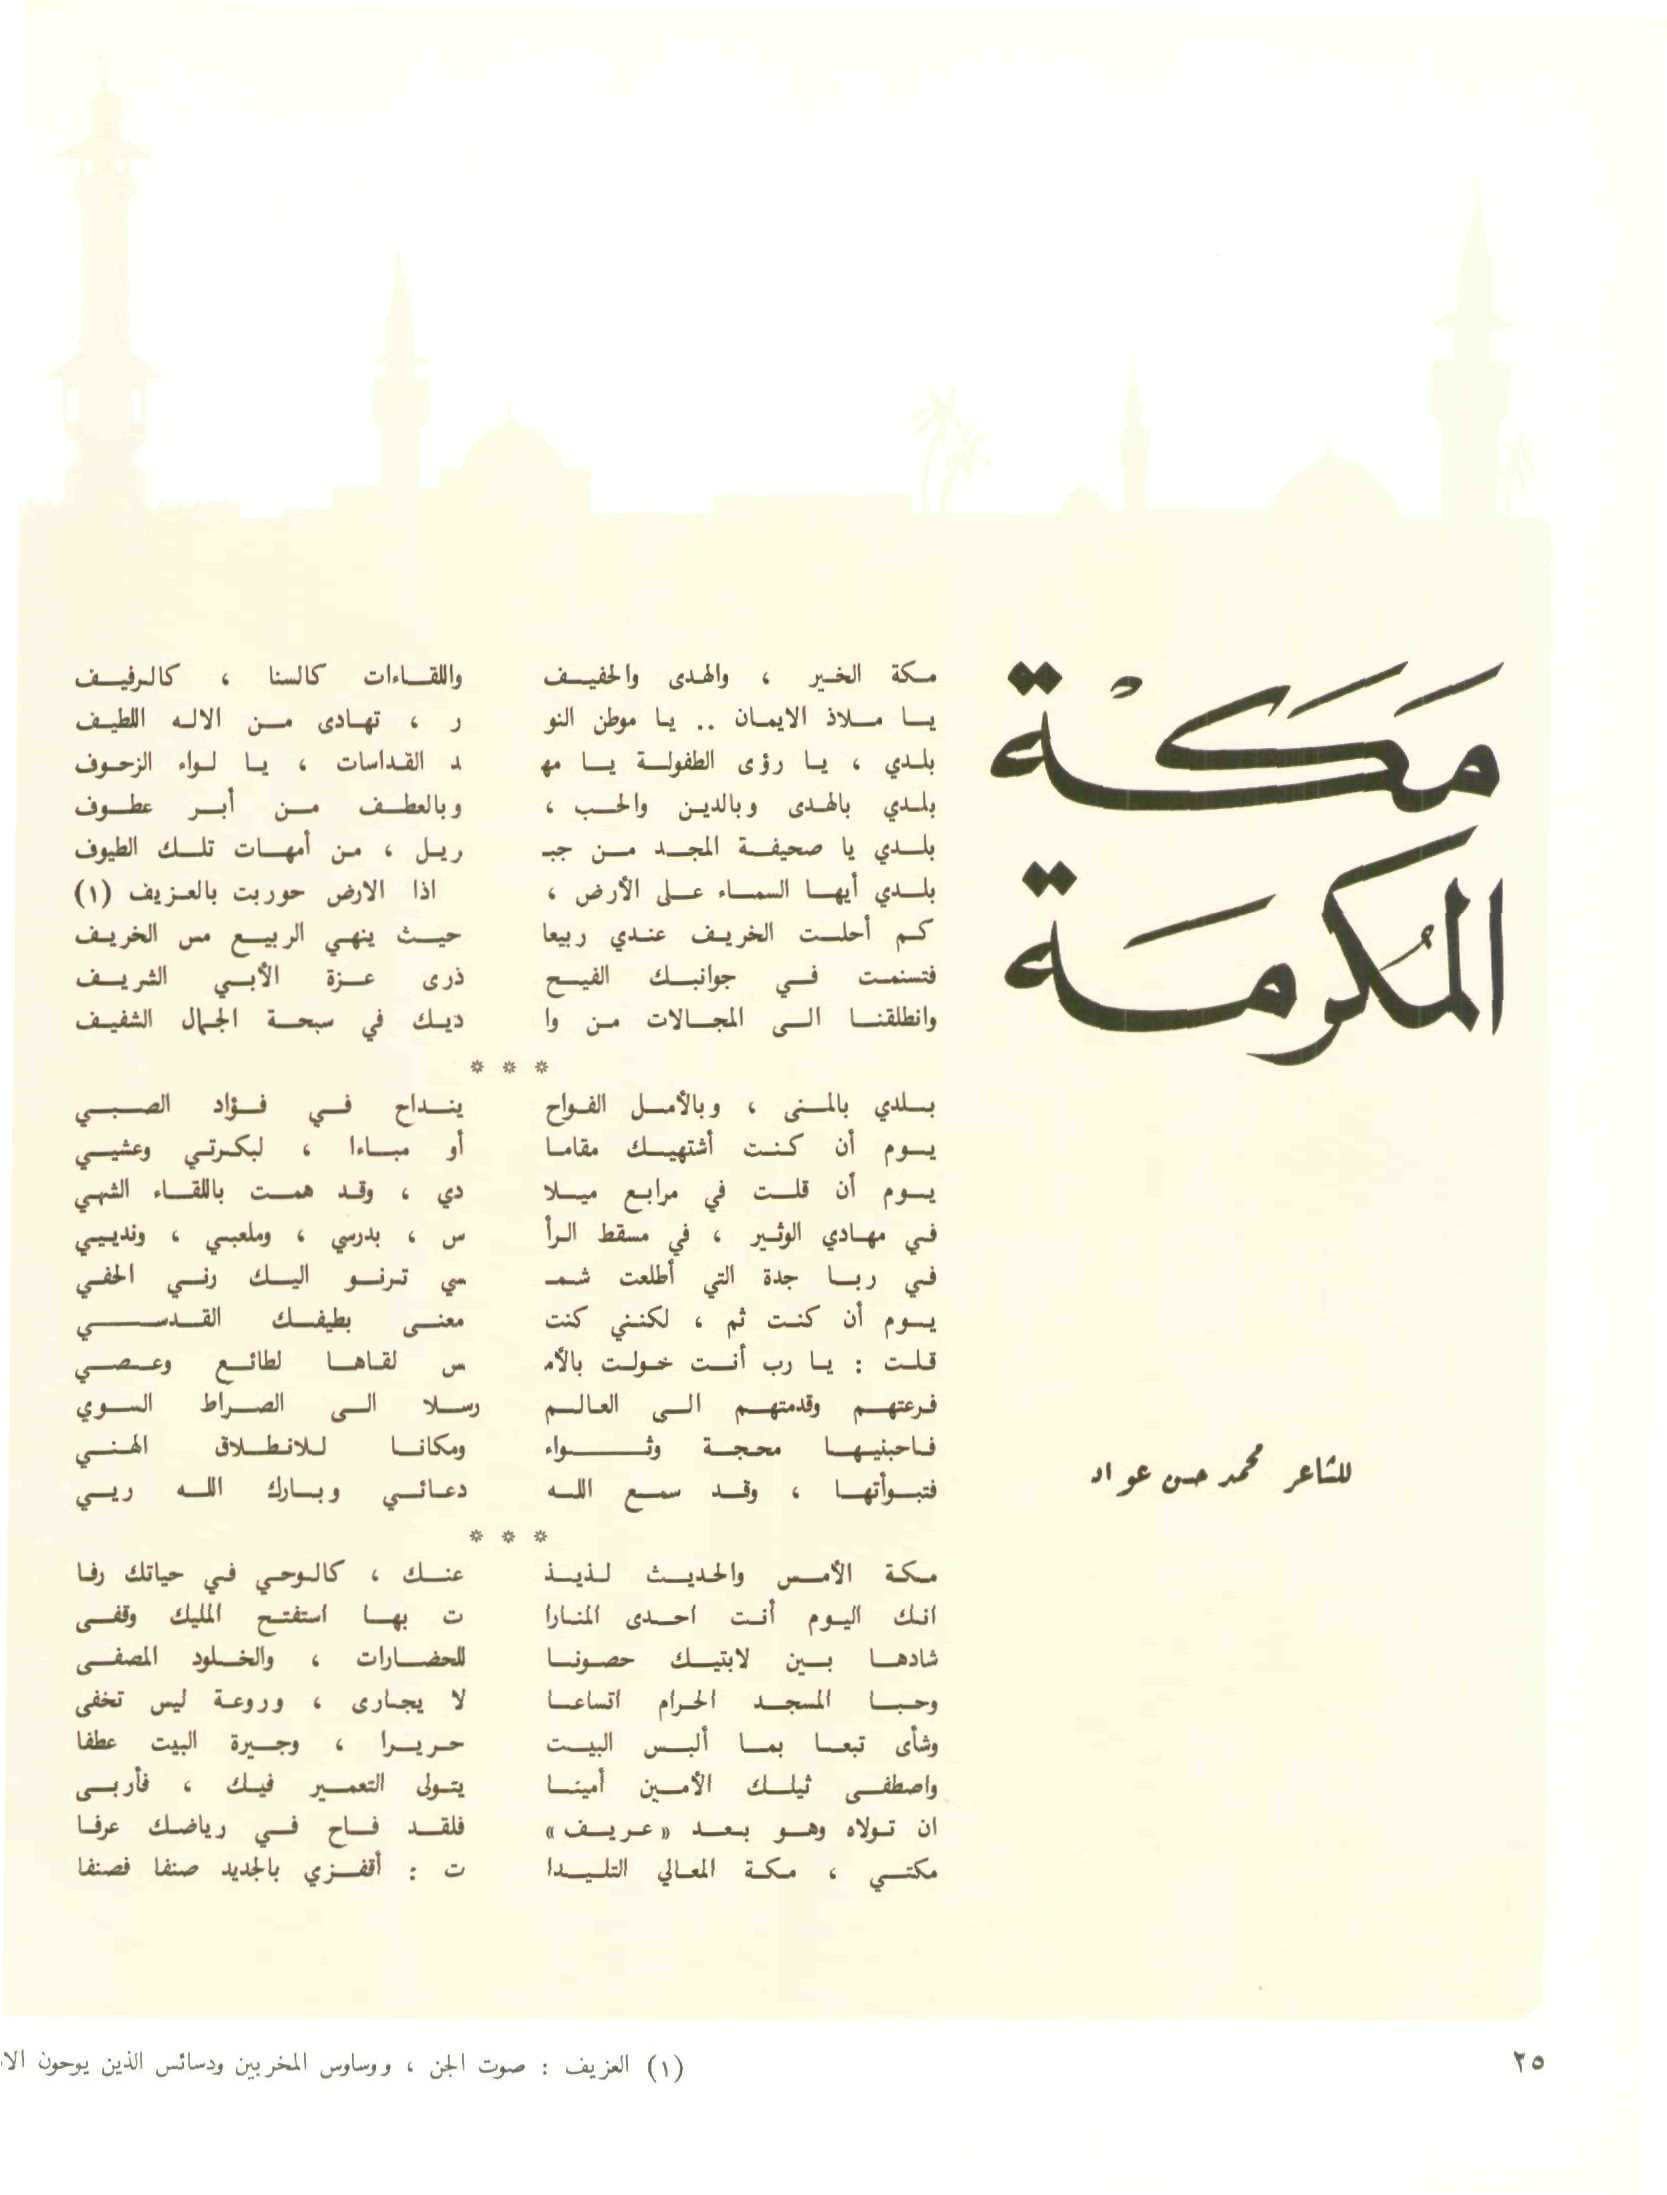 مكة
المكرمة
للشاعر محمد حسن عواد
مكة الخير ، والهدى والحفيف واللقاءات كالسنا ، كالرفيف
يا ملاذ الايمان .. يا موطن النو ر ، تهادى من الاله اللطيف
بلدي ، يا رؤى الطفولة يا مه د القداسات ، يا لواء الزحوف
بلدي بالهدى وبالدين والحب ، وبالعطف من أبر عطوف
بلدي يا صحيفة المجد من جبـ ريل ، من أمهات تلك الطيوف
بلدي أيها السماء على الأرض ، اذا الارض حوربت بالعزيف (١)
كم أحلت الخريف عندي ربيعا حيث ينهي الربيع مس الخريف
فتسنمت في جوانبك الفيح ذرى عزة الأبي الشريف
وانطلقنا الى المجالات من وا ديك في سبحة الجمال الشفيف
* * *
بلدي بالمنى ، وبالأمل الفواح ينداح في فؤاد الصبي
يوم أن كنت أشتهيك مقاما أو مباءا ، لبكرتي وعشيي
يوم أن قلت في مرابع ميلا دي ، وقد همت باللقاء الشهي
في مهادي الوثير ، في مسقط الرأ س ، بدرسي ، وملعبي ، ونديي
في ربا جدة التي أطلعت شمـ سي ترنو اليك رني الحفي
يوم أن كنت ثم ، لكنني كنت معنى بطيفك القدسي
قلت : يا رب أنت خولت بالأم س لقاها لطائع وعصي
فرعتهم وقدمتهم الى العالم رسلا الى الصراط السوي
فاحبنيها محجة وثواء ومكانا للانطلاق الهني
فتبوأتها ، وقد سمع الله دعائي وبارك الله ريي
* * *
مكة الأمس والحديث لذيذ عنك ، كالوحي في حياتك رفا
انك اليوم أنت احدى المنارا ت بها استفتح المليك وقفى
شادها بين لابتيك حصونا للحضارات ، والخلود المصفى
وحبا المسجد الحرام اتساعا لا يجارى ، وروعة ليس تخفى
وشأى تبعا بما ألبس البيت حريرا ، وجيرة البيت عطفا
واصطفى ثيلك الأمين أمينا يتولى التعمير فيك ، فأربى
ان تولاه وهو بعد «عريف» فلقد فاح في رياضك عرفا
مكتي ، مكة المعالي التليدا ت : أقفزي بالجديد صنفا فصنفا
(١) العزيف : صوت الجن ، ووساوس المخربين ودسائس الذين يوحون
٢٥